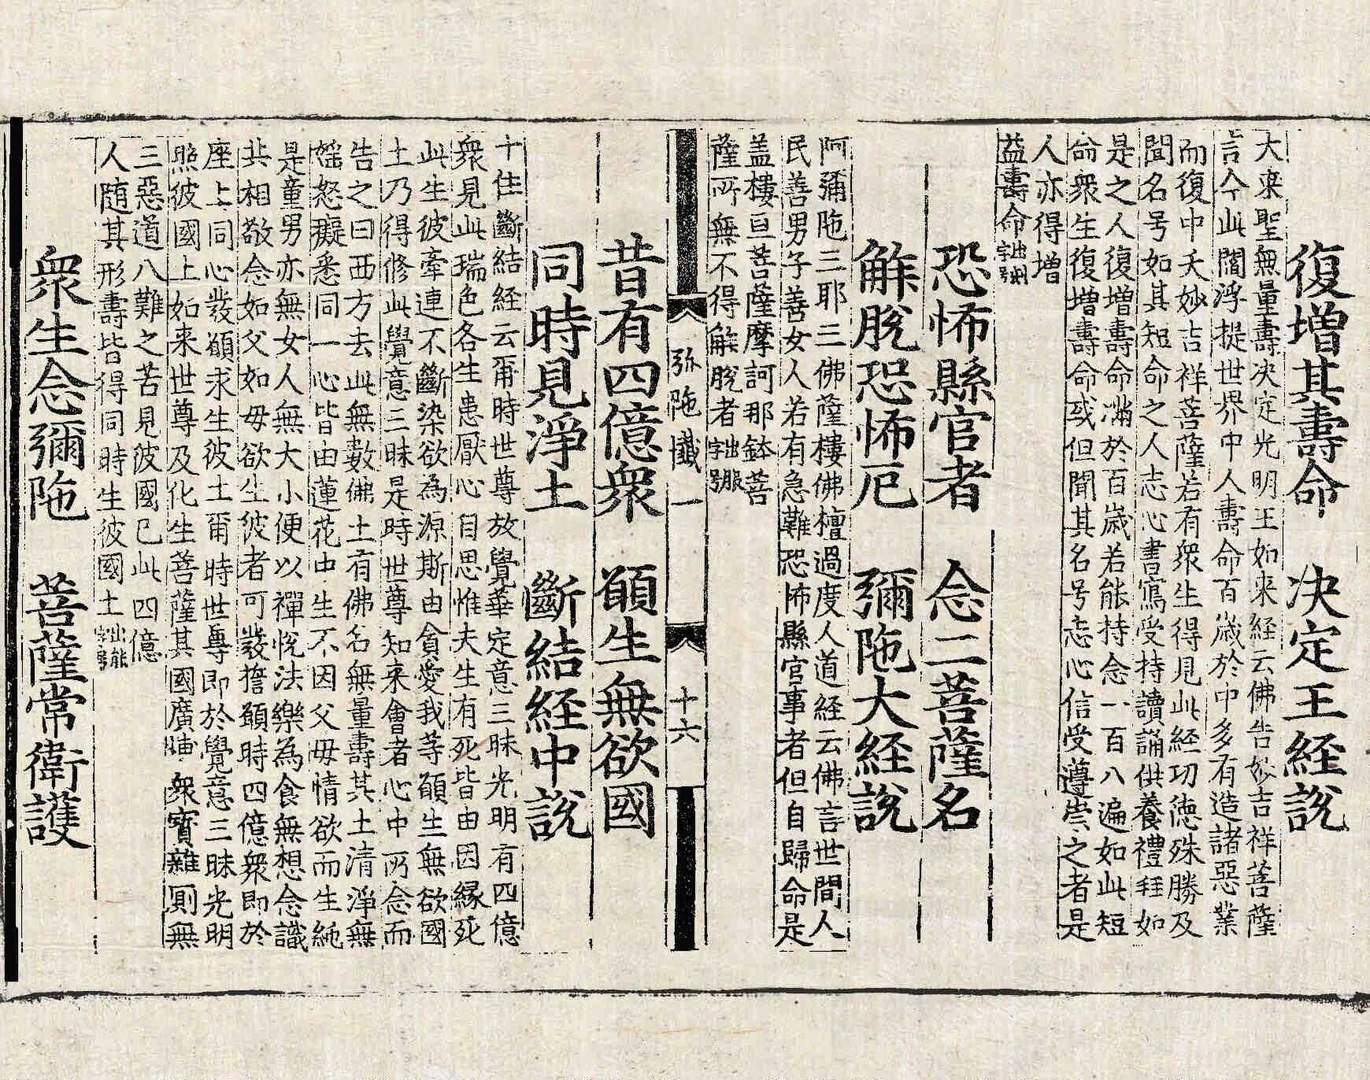 復增其壽命　决定王經説
大乘聖無量壽决定光明王如来經云佛告妙吉祥菩薩
言今此閻浮提世界中人壽命百歲於中多有造諸惡業
而復中夭妙吉祥菩薩若有衆生得見此經功德殊勝及
聞名号如其短命之人志心書寫受持讀誦供養禮拜如
是之人復增壽命滿於百歲若能持念一百八遍如此短
命衆生復增壽命或但聞其名号志心信受遵崇之者是
人亦得增
益壽命
恐怖縣官者　念二菩薩名
解脫恐怖厄　彌陁大經説
阿彌陁三耶三佛薩樓佛檀過度人道經云佛言世間人
民善男子善女人若有急難恐怖縣官事者但自歸命是
盖樓亘菩薩摩訶那鉢菩
薩所無不得解脫者
弥陁懴一　十六
昔有四億衆　願生無欲國
同時見淨土　斷結經中説
十住斷結經云爾時世尊放覺華定意三昧光明有四億
衆見此瑞色各生患厭心自思惟夫生有死皆由因緣死
此生彼牽連不斷染欲為源斯由貪愛我等願生無欲國
土乃得修此覺意三昧是時世尊知来會者心中所念而
告之曰西方去此無數佛土有佛名無量壽其土清淨無
婬怒癡悉同一心皆由蓮花中生不因父母情欲而生純
是童男亦無女人無大小便以禪悅法樂為食無想念識
共相敬念如父如母欲生彼者可發誓願時四億衆即於
座上同心發願求生彼土爾時世尊即於覺意三昧光明
照彼國土如来世尊及化生菩薩其國廣博衆寶雜厠無
三惡道八難之苦見彼國已此四億
人随其形壽皆得同時生彼國土
衆生念彌陁　菩薩常衛護